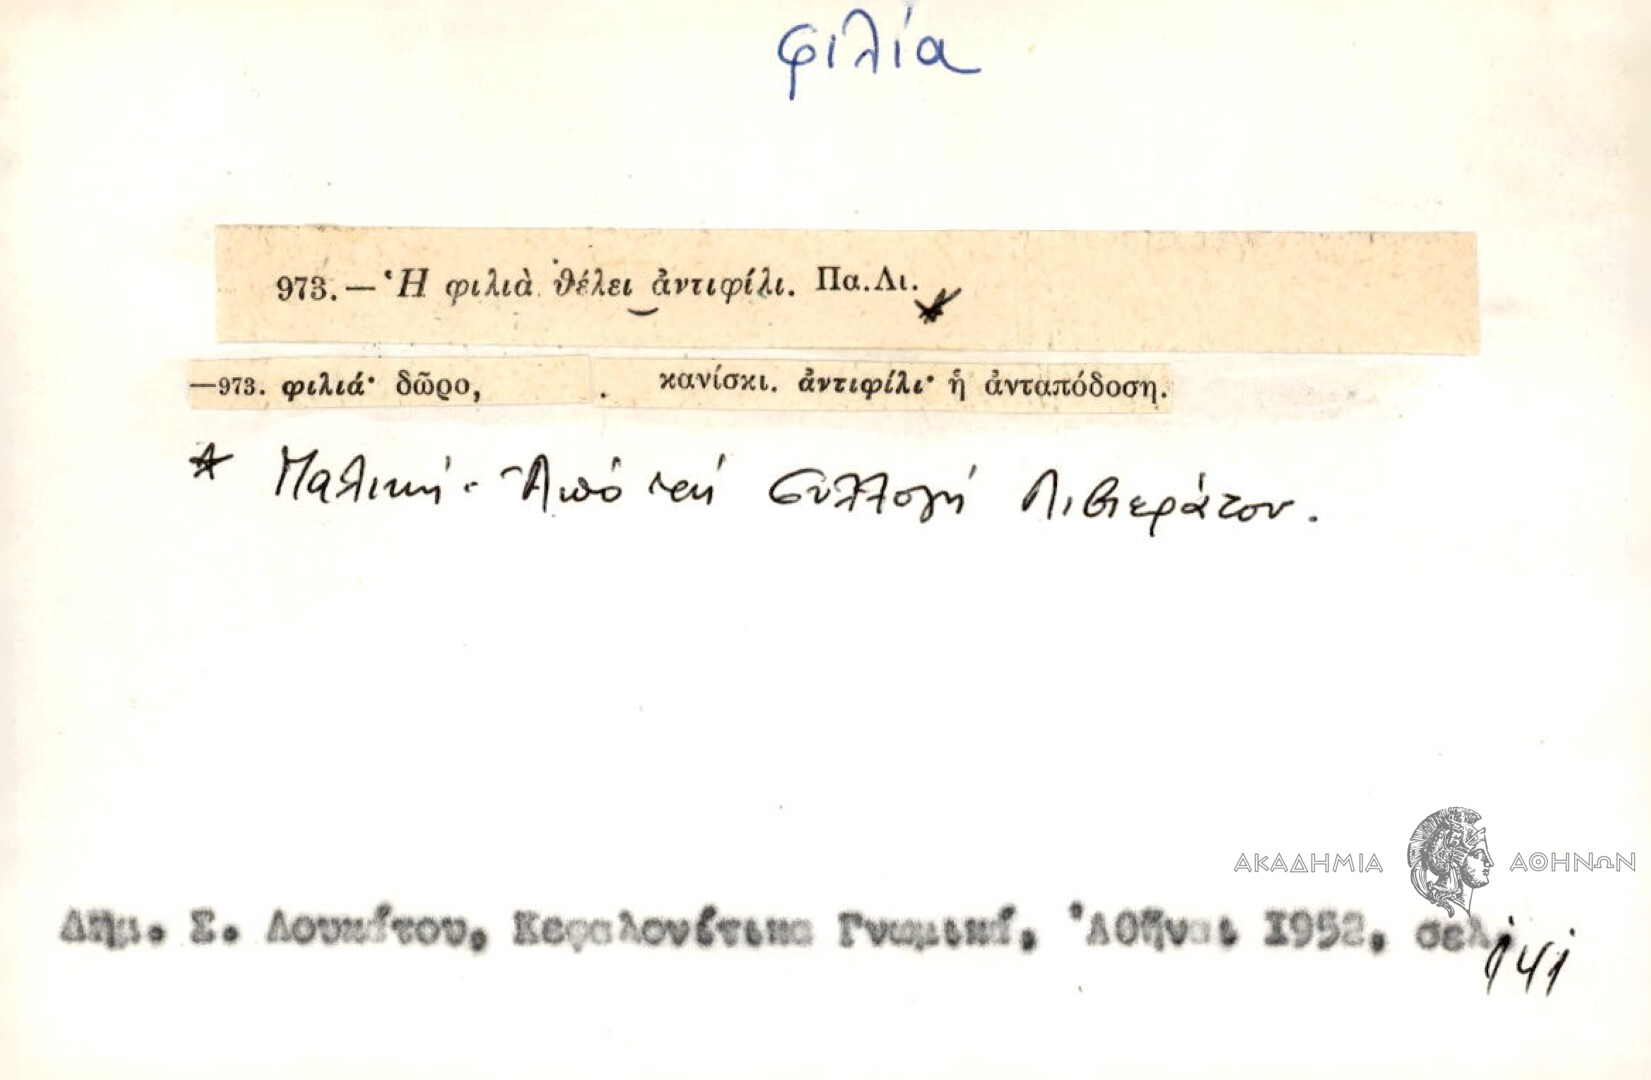 φιλία
973.— Ἡ φιλιὰ θέλει ἀντιφίλι. Πα.Λι.
—973. φιλιά· δῶρο, . κανίσκι. ἀντιφίλι· ἡ ἀνταπόδοση.
* Παλική· Ἀπό τή συλλογή Λιβιεράτου.
ΑΚΑΔΗΜΙΑ ΑΘΗΝΩΝ
Δημ. Σ. Λουκάτου, Κεφαλονίτικα Γνωμικά, Ἀθῆναι 1952, σελ. 141